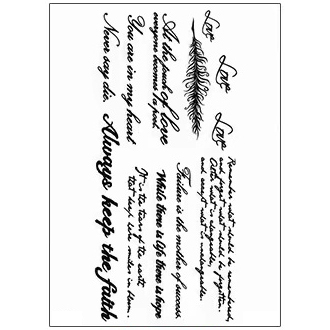 Love
Love
Love
Remember what should be remembered,
and forget what should be forgotten.
Alter what is changeable,
and accept what is
At the touch of love
everyone becomes a poet.
Failure is the mother of success
You are in my heart
While there is life there is hope
Never say die.
It is the tears of the earth
that keep here smiles in bloom.
Always keep the faith